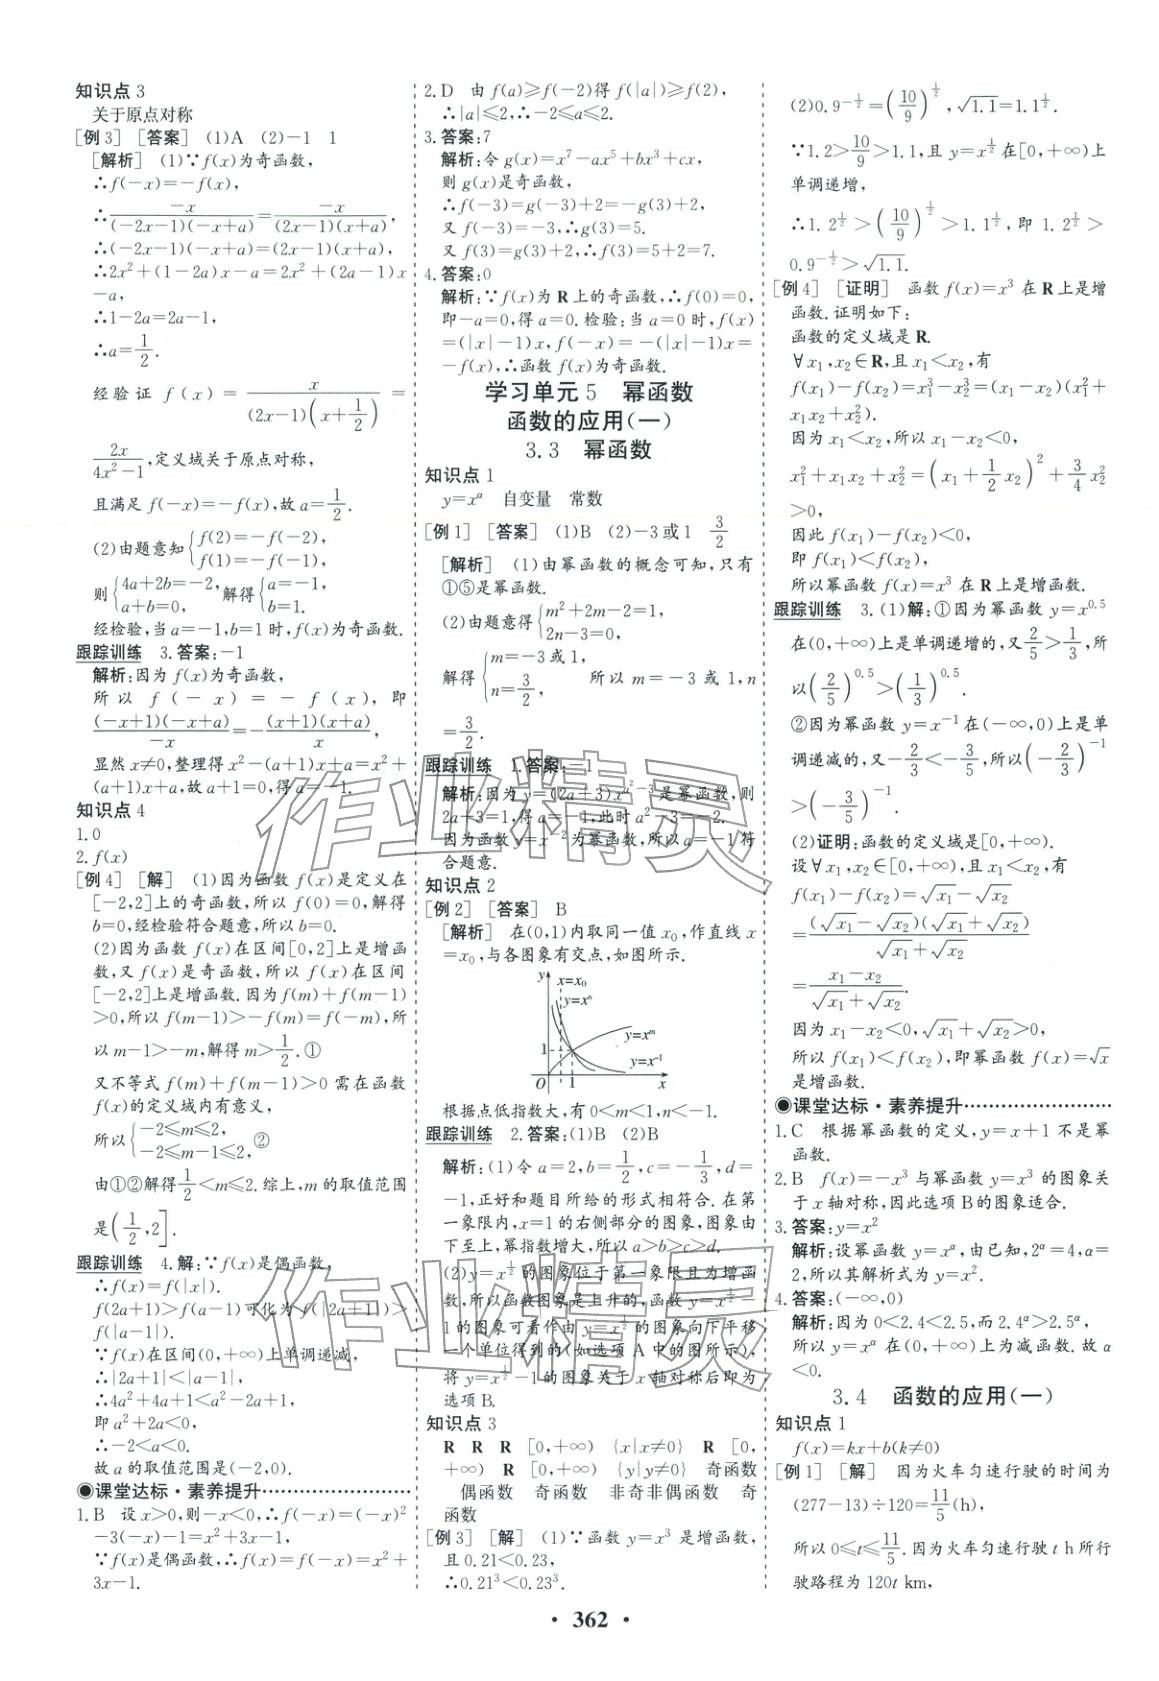 知识点 3
关于原点对称
[例 3] [答案] (1)A (2)-1 1
[解析] (1)∵f(x)为奇函数,
∴f(-x)=-f(x),
∴-x/((-2x-1)(-x+a))=-x/((2x-1)(x+a)),
∴(-2x-1)(-x+a)=(2x-1)(x+a),
∴2x²+(1-2a)x-a=2x²+(2a-1)x
-a,
∴1-2a=2a-1,
∴a=1/2.
经验证 f(x)=x/((2x-1)(x+1/2))=
2x/(4x²-1),定义域关于原点对称,
且满足 f(-x)=-f(x),故 a=1/2.
(2)由题意知{f(2)=-f(-2), f(1)=-f(-1),
则{4a+2b=-2, a+b=0, 解得{a=-1, b=1.
经检验,当 a=-1,b=1 时,f(x)为奇函数.
跟踪训练 3.答案:-1
解析:因为 f(x)为奇函数,
所以 f(-x)=-f(x),即
(-x+1)(-x+a)/(-x)=-(x+1)(x+a)/x,
显然 x≠0,整理得 x²-(a+1)x+a=x²+
(a+1)x+a,故 a+1=0,得 a=-1.
知识点 4
1.0
2.f(x)
[例 4] [解] (1)因为函数 f(x)是定义在
[-2,2]上的奇函数,所以 f(0)=0,解得
b=0,经检验符合题意,所以 b=0.
(2)因为函数 f(x)在区间[0,2]上是增函
数,又 f(x)是奇函数,所以 f(x)在区间
[-2,2]上是增函数.因为 f(m)+f(m-1)
>0,所以 f(m-1)>-f(m)=f(-m),所
以 m-1>-m,解得 m>1/2.①
又不等式 f(m)+f(m-1)>0 需在函数
f(x)的定义域内有意义,
所以{-2≤m≤2, -2≤m-1≤2, ②
由①②解得1/2<m≤2.综上,m 的取值范围
是(1/2,2].
跟踪训练 4.解:∵f(x)是偶函数,
∴f(x)=f(|x|).
f(2a+1)>f(a-1)可化为 f(|2a+1|)>
f(|a-1|).
∵f(x)在区间(0,+∞)上单调递减,
∴|2a+1|<|a-1|,
∴4a²+4a+1<a²-2a+1,
即 a²+2a<0,
∴-2<a<0.
故 a 的取值范围是(-2,0).
◉课堂达标·素养提升
1.B 设 x>0,则-x<0,∴f(-x)=(-x)²
-3(-x)-1=x²+3x-1,
∵f(x)是偶函数,∴f(x)=f(-x)=x²+
3x-1.
2.D 由 f(a)≥f(-2)得 f(|a|)≥f(2),
∴|a|≤2,∴-2≤a≤2.
3.答案:7
解析:令 g(x)=x⁷-ax⁵+bx³+cx,
则 g(x)是奇函数,
∴f(-3)=g(-3)+2=-g(3)+2,
又 f(-3)=-3,∴g(3)=5.
又 f(3)=g(3)+2,∴f(3)=5+2=7.
4.答案:0
解析:∵f(x)为 R 上的奇函数,∴f(0)=0,
即-a=0,得 a=0.检验:当 a=0 时,f(x)
=(|x|-1)x,f(-x)=-(|x|-1)x=
-f(x),∴函数 f(x)为奇函数.
学习单元 5 幂函数
函数的应用(一)
3.3 幂函数
知识点 1
y=x^α 自变量 常数
[例 1] [答案] (1)B (2)-3 或 1 3/2
[解析] (1)由幂函数的概念可知,只有
①⑤是幂函数.
(2)由题意得{m²+2m-2=1, 2n-3=0,
解得{m=-3 或 1, n=3/2, 所以 m=-3 或 1,n
=3/2.
跟踪训练 1.答案:-1
解析:因为 y=(2a+3)x^(a²-3) 是幂函数,则
2a+3=1,得 a=-1,此时 a²-3=-2.
因为函数 y=x⁻² 为幂函数,所以 a=-1 符
合题意.
知识点 2
[例 2] [答案] B
[解析] 在(0,1)内取同一值 x₀,作直线 x
=x₀,与各图象有交点,如图所示.
y x=x₀
y=xⁿ
y=x^m
1
y=x⁻¹
O 1 x
根据点低指数大,有 0<m<1,n<-1.
跟踪训练 2.答案:(1)B (2)B
解析:(1)令 a=2,b=1/2,c=-1/3,d=
-1,正好和题目所给的形式相符合.在第
一象限内,x=1 的右侧部分的图象,图象由
下至上,幂指数增大,所以 a>b>c>d.
(2)y=x^(1/2) 的图象位于第一象限且为增函
数,所以函数图象是上升的,函数 y=x^(1/2)-
1 的图象可看作由 y=x^(1/2) 的图象向下平移
一个单位得到的(如选项 A 中的图所示),
将 y=x^(1/2)-1 的图象关于 x 轴对称后即为
选项 B.
知识点 3
R R R [0,+∞) {x|x≠0} R [0,
+∞) R [0,+∞) {y|y≠0} 奇函数
偶函数 奇函数 非奇非偶函数 奇
函数
[例 3] [解] (1)∵函数 y=x³ 是增函数,
且 0.21<0.23,
∴0.21³<0.23³.
(2)0.9^(-1/2)=(10/9)^(1/2),√1.1=1.1^(1/2).
∵1.2>10/9>1.1,且 y=x^(1/2) 在[0,+∞)上
单调递增,
∴1.2^(1/2)>(10/9)^(1/2)>1.1^(1/2),即 1.2^(1/2)>
0.9^(-1/2)>√1.1.
[例 4] [证明] 函数 f(x)=x³ 在 R 上是增
函数.证明如下:
函数的定义域是 R.
∀x₁,x₂∈R,且 x₁<x₂,有
f(x₁)-f(x₂)=x₁³-x₂³=(x₁-x₂)(x₁²+
x₁x₂+x₂²).
因为 x₁<x₂,所以 x₁-x₂<0,
x₁²+x₁x₂+x₂²=(x₁+1/2x₂)²+3/4x₂²
>0,
因此 f(x₁)-f(x₂)<0,
即 f(x₁)<f(x₂),
所以幂函数 f(x)=x³ 在 R 上是增函数.
跟踪训练 3.(1)解:①因为幂函数 y=x^0.5
在(0,+∞)上是单调递增的,又2/5>1/3,所
以(2/5)^0.5>(1/3)^0.5.
②因为幂函数 y=x⁻¹ 在(-∞,0)上是单
调递减的,又-2/3<-3/5,所以(-2/3)⁻¹
>(-3/5)⁻¹.
(2)证明:函数的定义域是[0,+∞).
设∀x₁,x₂∈[0,+∞),且 x₁<x₂,有
f(x₁)-f(x₂)=√x₁-√x₂
=(√x₁-√x₂)(√x₁+√x₂)/(√x₁+√x₂)
=(x₁-x₂)/(√x₁+√x₂).
因为 x₁-x₂<0,√x₁+√x₂>0,
所以 f(x₁)<f(x₂),即幂函数 f(x)=√x
是增函数.
◉课堂达标·素养提升
1.C 根据幂函数的定义,y=x+1 不是幂
函数.
2.B f(x)=-x³ 与幂函数 y=x³ 的图象关
于 x 轴对称,因此选项 B 的图象适合.
3.答案:y=x²
解析:设幂函数 y=x^α,由已知,2^α=4,α=
2,所以其解析式为 y=x².
4.答案:(-∞,0)
解析:因为 0<2.4<2.5,而 2.4^α>2.5^α,
所以 y=x^α 在(0,+∞)上为减函数.故 α
<0.
3.4 函数的应用(一)
知识点 1
f(x)=kx+b(k≠0)
[例 1] [解] 因为火车匀速行驶的时间为
(277-13)÷120=11/5(h),
所以 0≤t≤11/5.因为火车匀速行驶 t h 所行
驶路程为 120t km,
· 362 ·
作业精灵
作业精灵